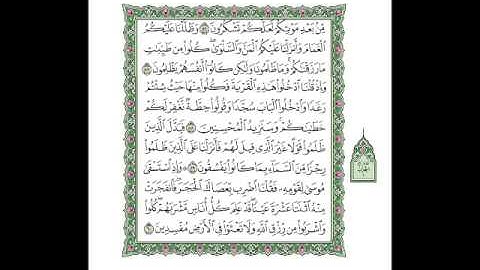 مِّنۢ بَعْدِ مَوْتِكُمْ لَعَلَّكُمْ تَشْكُرُونَ ٥٦ وَظَلَّلْنَا عَلَيْكُمُ
ٱلْغَمَامَ وَأَنزَلْنَا عَلَيْكُمُ ٱلْمَنَّ وَٱلسَّلْوَىٰ كُلُوا۟ مِن طَيِّبَٰتِ
مَا رَزَقْنَٰكُمْ وَمَا ظَلَمُونَا وَلَٰكِن كَانُوٓا۟ أَنفُسَهُمْ يَظْلِمُونَ ٥٧
وَإِذْ قُلْنَا ٱدْخُلُوا۟ هَٰذِهِ ٱلْقَرْيَةَ فَكُلُوا۟ مِنْهَا حَيْثُ شِئْتُمْ
رَغَدًا وَٱدْخُلُوا۟ ٱلْبَابَ سُجَّدًا وَقُولُوا۟ حِطَّةٌ نَّغْفِرْ لَكُمْ
خَطَٰيَٰكُمْ وَسَنَزِيدُ ٱلْمُحْسِنِينَ ٥٨ فَبَدَّلَ ٱلَّذِينَ
ظَلَمُوا۟ قَوْلًا غَيْرَ ٱلَّذِى قِيلَ لَهُمْ فَأَنزَلْنَا عَلَى ٱلَّذِينَ ظَلَمُوا۟
رِجْزًا مِّنَ ٱلسَّمَآءِ بِمَا كَانُوا۟ يَفْسُقُونَ ٥٩ وَإِذِ ٱسْتَسْقَىٰ
مُوسَىٰ لِقَوْمِهِۦ فَقُلْنَا ٱضْرِب بِّعَصَاكَ ٱلْحَجَرَ فَٱنفَجَرَتْ
مِنْهُ ٱثْنَتَا عَشْرَةَ عَيْنًا قَدْ عَلِمَ كُلُّ أُنَاسٍ مَّشْرَبَهُمْ كُلُوا۟
وَٱشْرَبُوا۟ مِن رِّزْقِ ٱللَّهِ وَلَا تَعْثَوْا۟ فِى ٱلْأَرْضِ مُفْسِدِينَ ٦٠